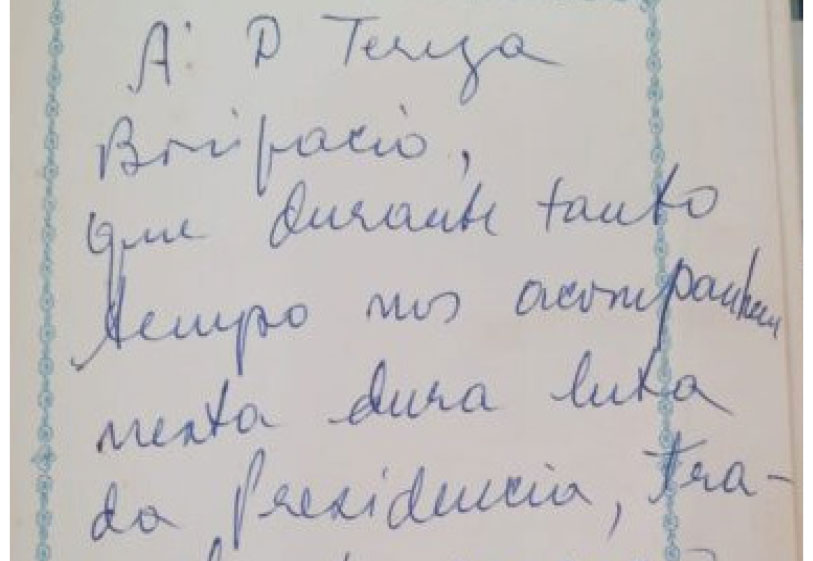 A' D Tereza
Bonifacio,
que durante tanto
tempo nos acompanhou
nesta dura luta
da Presidencia, tra-